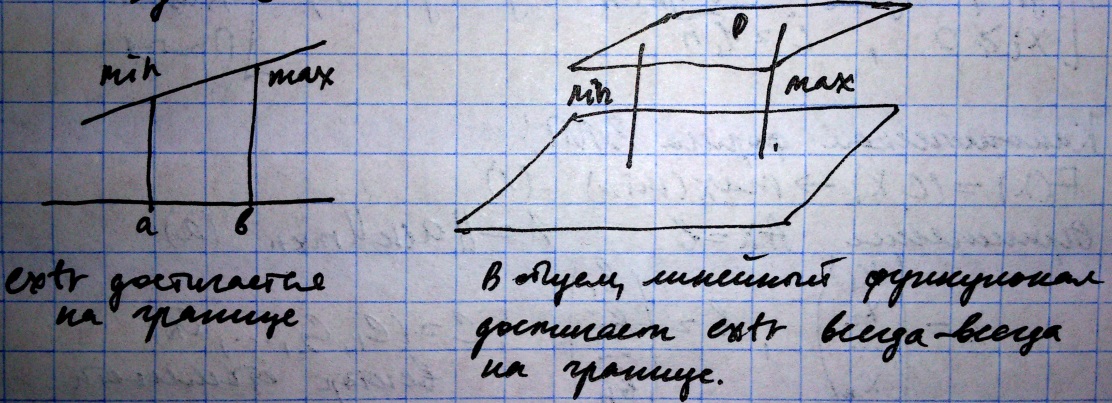 min
max
a
b
extr достигается
на границе
D
min
max
В общем, линейный функционал
достигает extr всегда-всегда
на границе.